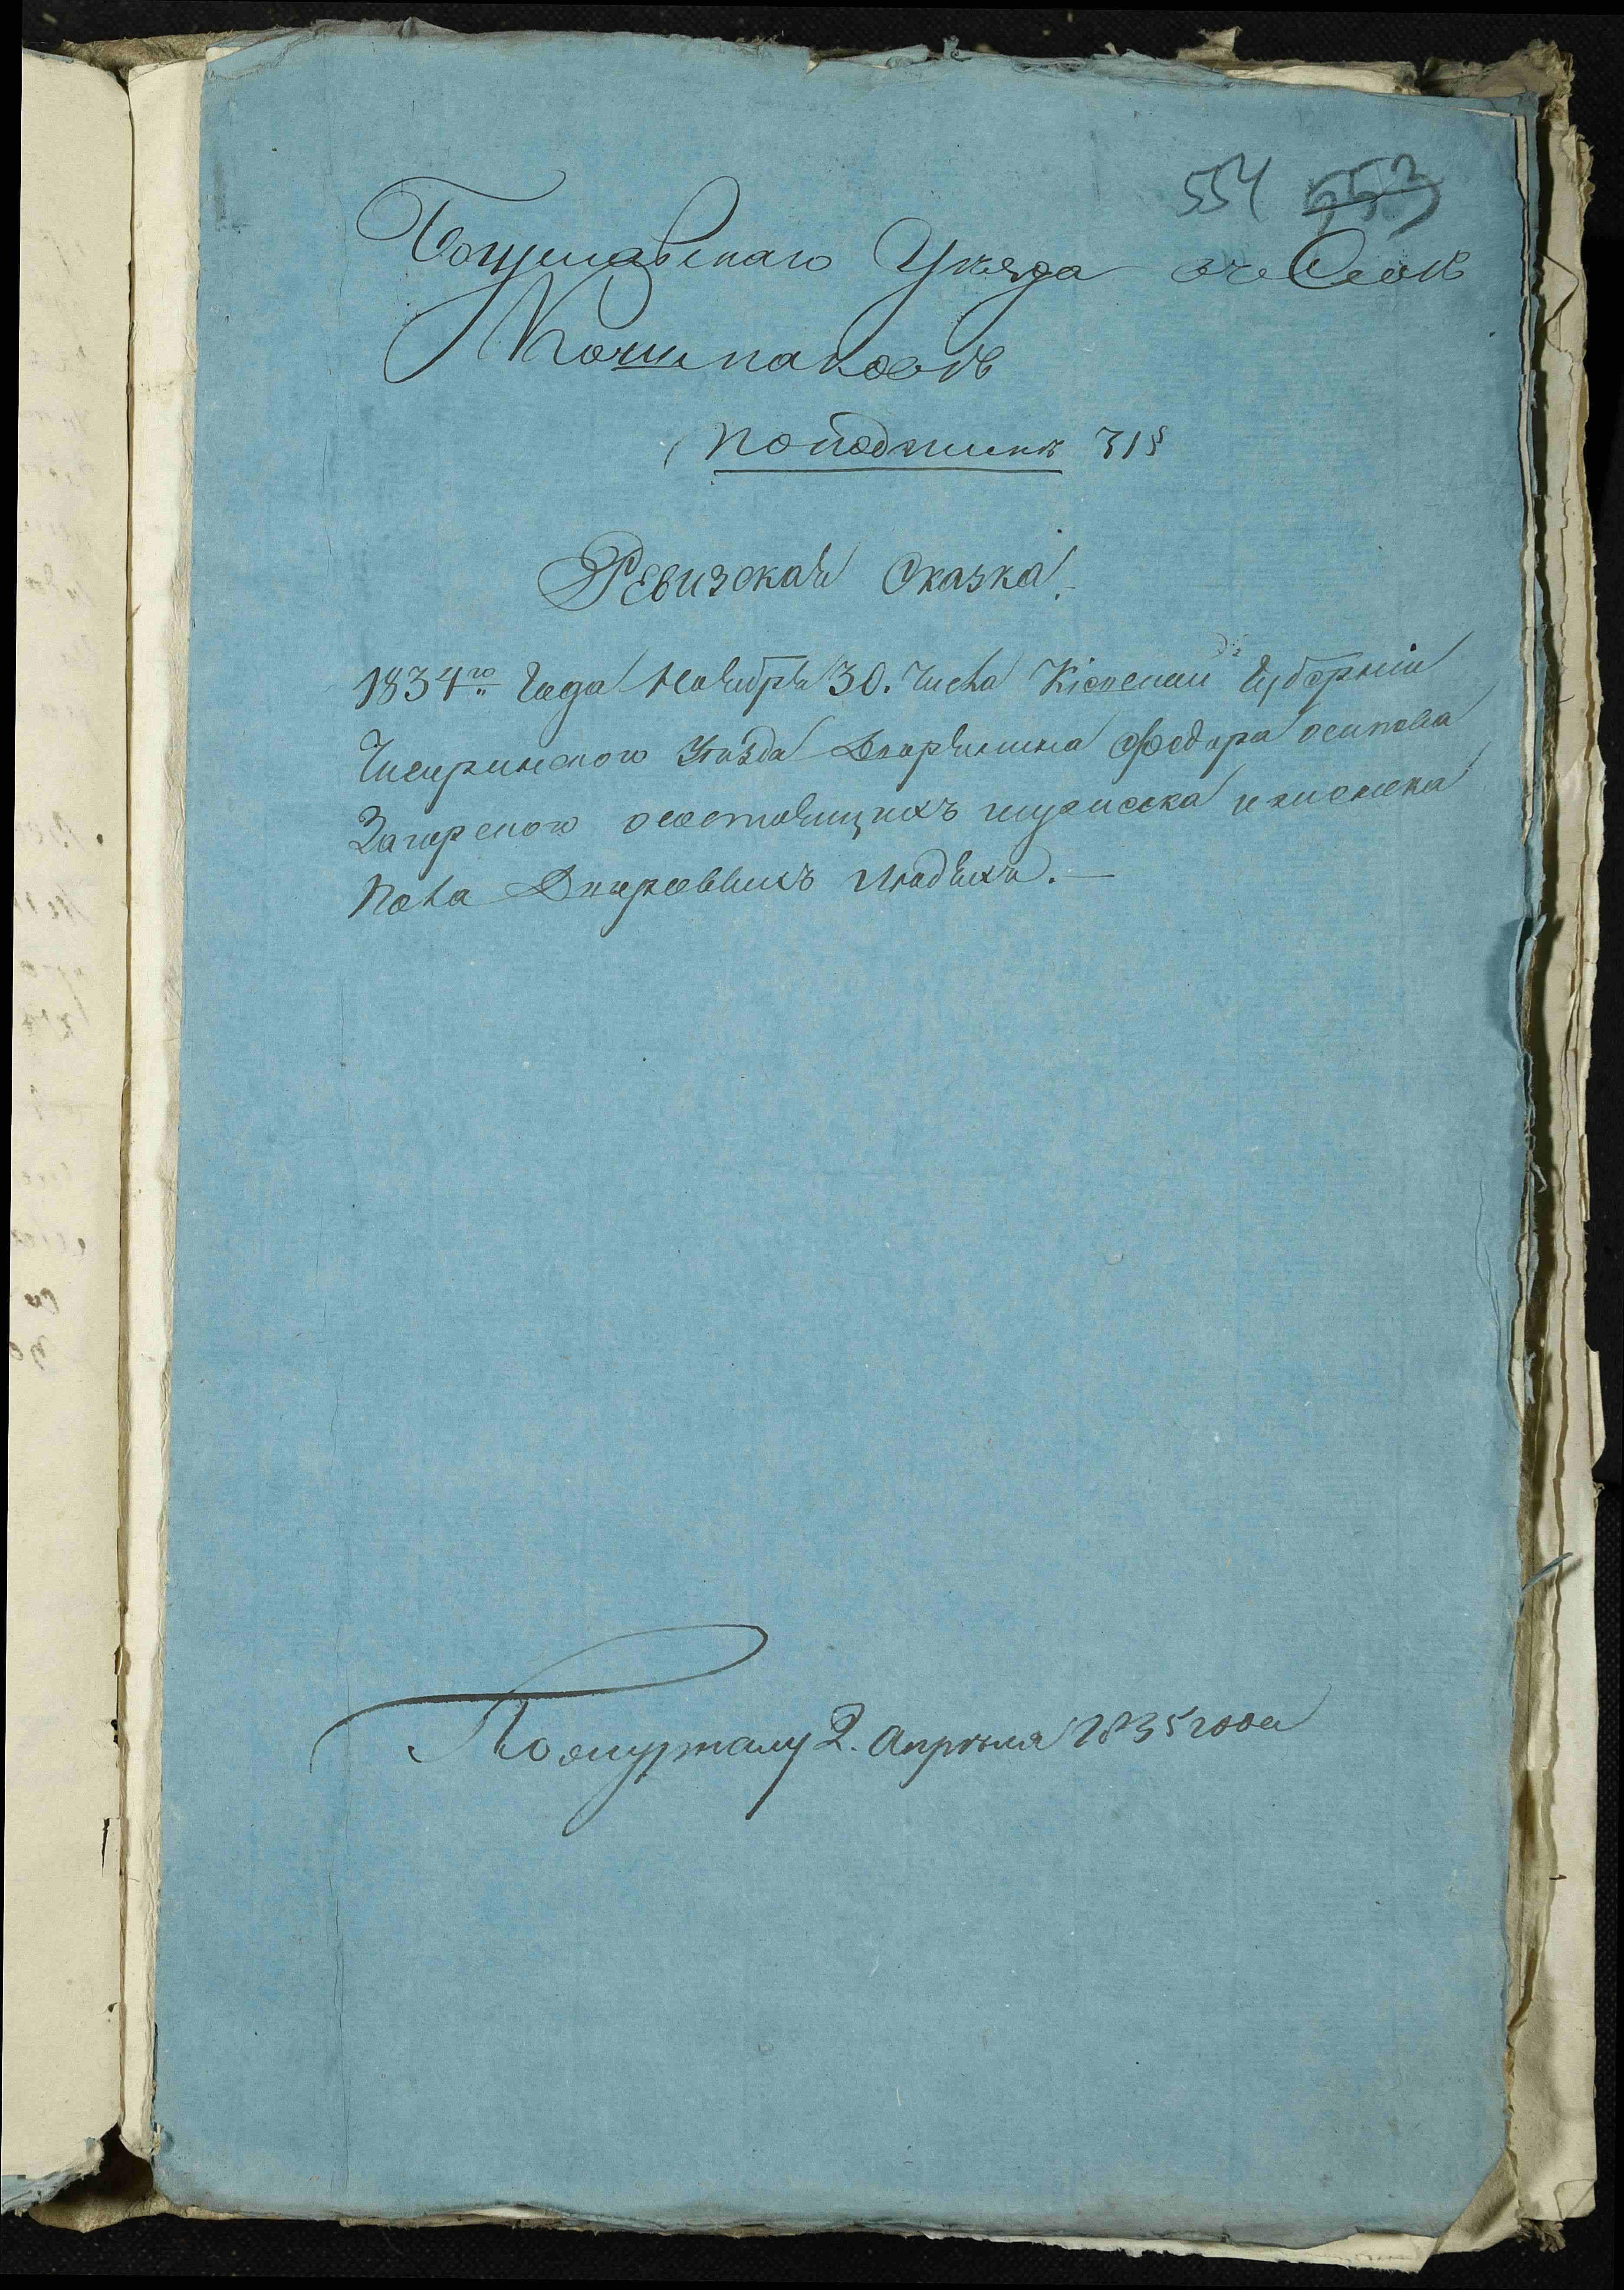 554 553
Богуславскаго Уезда въ Селе
Кошмаковъ
По подшивк 318
Ревизская Сказка.
1834го Года Ноября 30. Числа Кіевской Губерніи
Чигиринскаго Уезда Дворянина Федора Осипова
Загорскаго о состоящихъ мужеска и женска
Пола Дворовыхъ Людяхъ.
По журналу 2. Апреля 1835 года